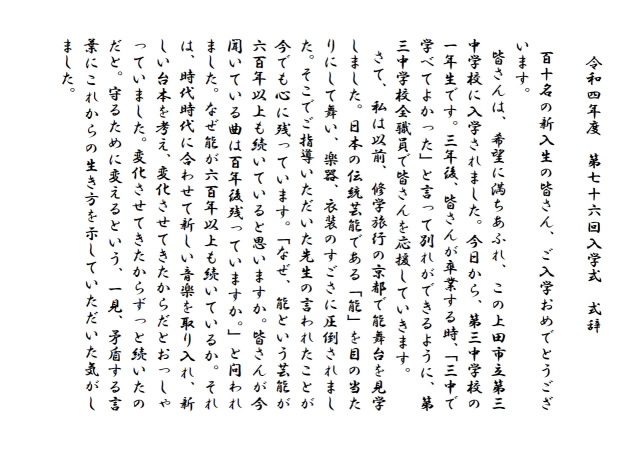 令和四年度　第七十六回入学式　式辞
百十名の新入生の皆さん、ご入学おめでとうござ
います。
皆さんは、希望に満ちあふれ、この上田市立第三
中学校に入学されました。今日から、第三中学校の
一年生です。三年後、皆さんが卒業する時、「三中で
学べてよかった」と言って別れができるように、第
三中学校全職員で皆さんを応援していきます。
さて、私は以前、修学旅行の京都で能舞台を見学
しました。日本の伝統芸能である「能」を目の当た
りにして舞い、楽器、衣装のすごさに圧倒されまし
た。そこでご指導いただいた先生の言われたことが
今でも心に残っています。「なぜ、能という芸能が
六百年以上も続いていると思いますか。皆さんが今
聞いている曲は百年後残っていますか。」と問われ
ました。なぜ能が六百年以上も続いているか。それ
は、時代時代に合わせて新しい音楽を取り入れ、新
しい台本を考え、変化させてきたからだとおっしゃ
っていました。変化させてきたからずっと続いたの
だと。守るために変えるという、一見、矛盾する言
葉にこれからの生き方を示していただいた気がし
ました。